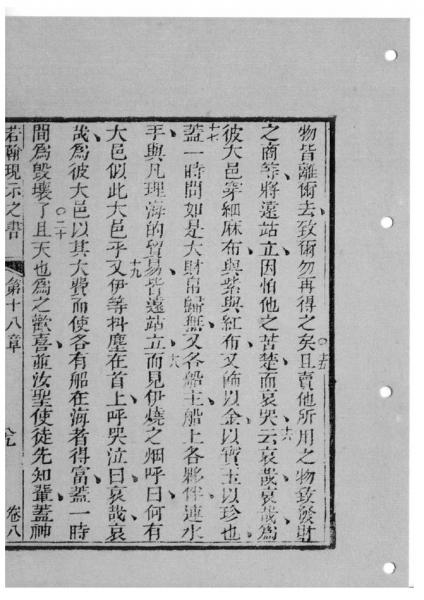 物皆離爾去致爾勿再得之矣○十五且賣他所用之物致發財
之商等將遠站立因怕他之苦楚而哀哭十六云哀哉哀哉爲
彼大邑穿細麻布與紫與紅布又飾以金以寶玉以珍也
十七蓋一時間如是大財帛歸無又各船主船上各夥伴連水
手與凡理海的貿易皆遠站立十八而見伊燒之烟呼曰何有
大邑似此大邑乎十九又伊等抖塵在首上呼哭泣曰哀哉哀
哉爲彼大邑以其大費而使各有船在海者得富蓋一時
間爲毀壞了○二十且天也爲之歡喜並汝聖使徒先知輩蓋神
若翰現示之書 第十八章 卷八